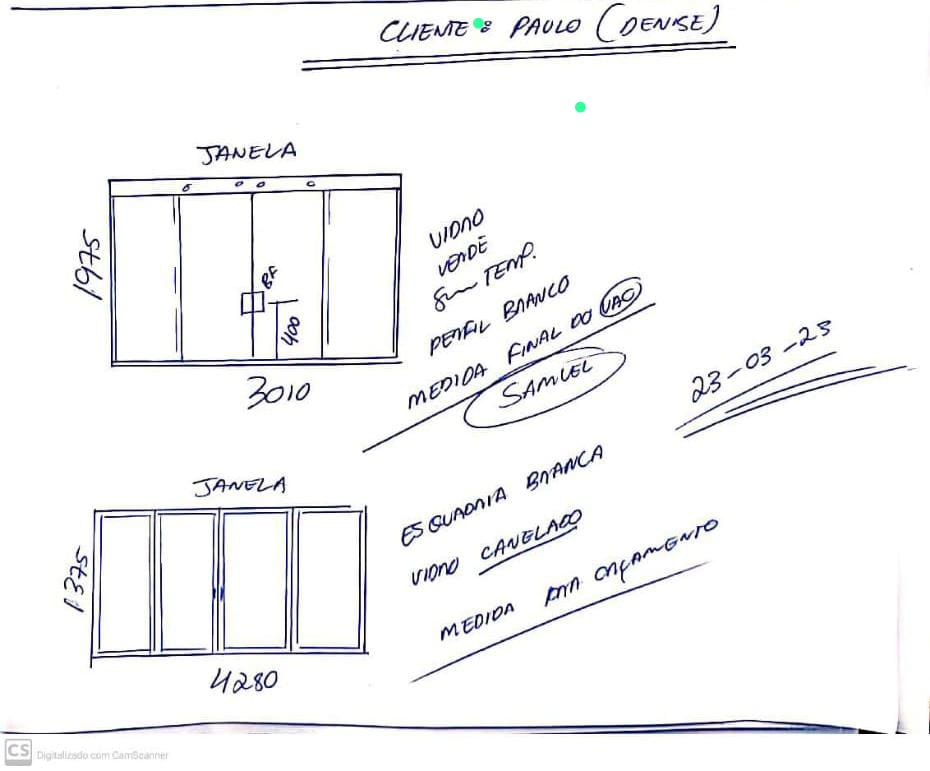 CLIENTE: PAULO (DENISE)
JANELA
1975
BF
400
3010
VIDRO
VERDE
8mm TEMP.
PERFIL BRANCO
MEDIDA FINAL DO VÃO
SAMUEL
23-03-23
JANELA
1375
4280
ESQUADRIA BRANCA
VIDRO CANELADO
MEDIDA PRA ORÇAMENTO
CS Digitalizado com CamScanner